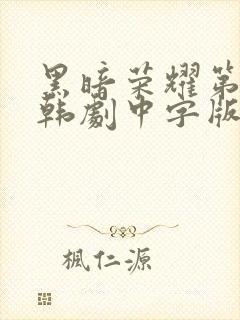 黑暗荣耀第
韩劇中字版
楓仁源